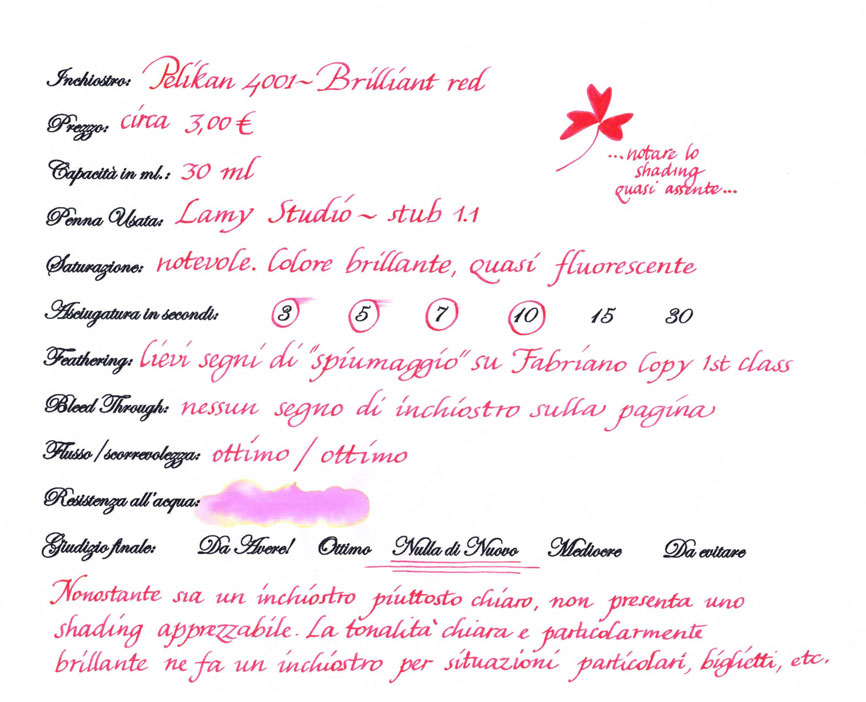 Inchiostro: Pelikan 4001~Brilliant red
Prezzo: circa 3,00 €
Capacità in ml.: 30 ml
...notare lo
shading
quasi assente...
Penna Usata: Lamy Studio ~ stub 1.1
Saturazione: notevole. Colore brillante, quasi fluorescente
Asciugatura in secondi: 3 5 7 10 15 30
Feathering: lievi segni di "spiumaggio" su Fabriano Copy 1st class
Bleed Through: nessun segno di inchiostro sulla pagina
Flusso/scorrevolezza: ottimo / ottimo
Resistenza all'acqua:
Giudizio finale: Da Avere! Ottimo Nulla di Nuovo Mediocre Da evitare
Nonostante sia un inchiostro piuttosto chiaro, non presenta uno
shading apprezzabile. La tonalità chiara e particolarmente
brillante ne fa un inchiostro per situazioni particolari, biglietti, etc.